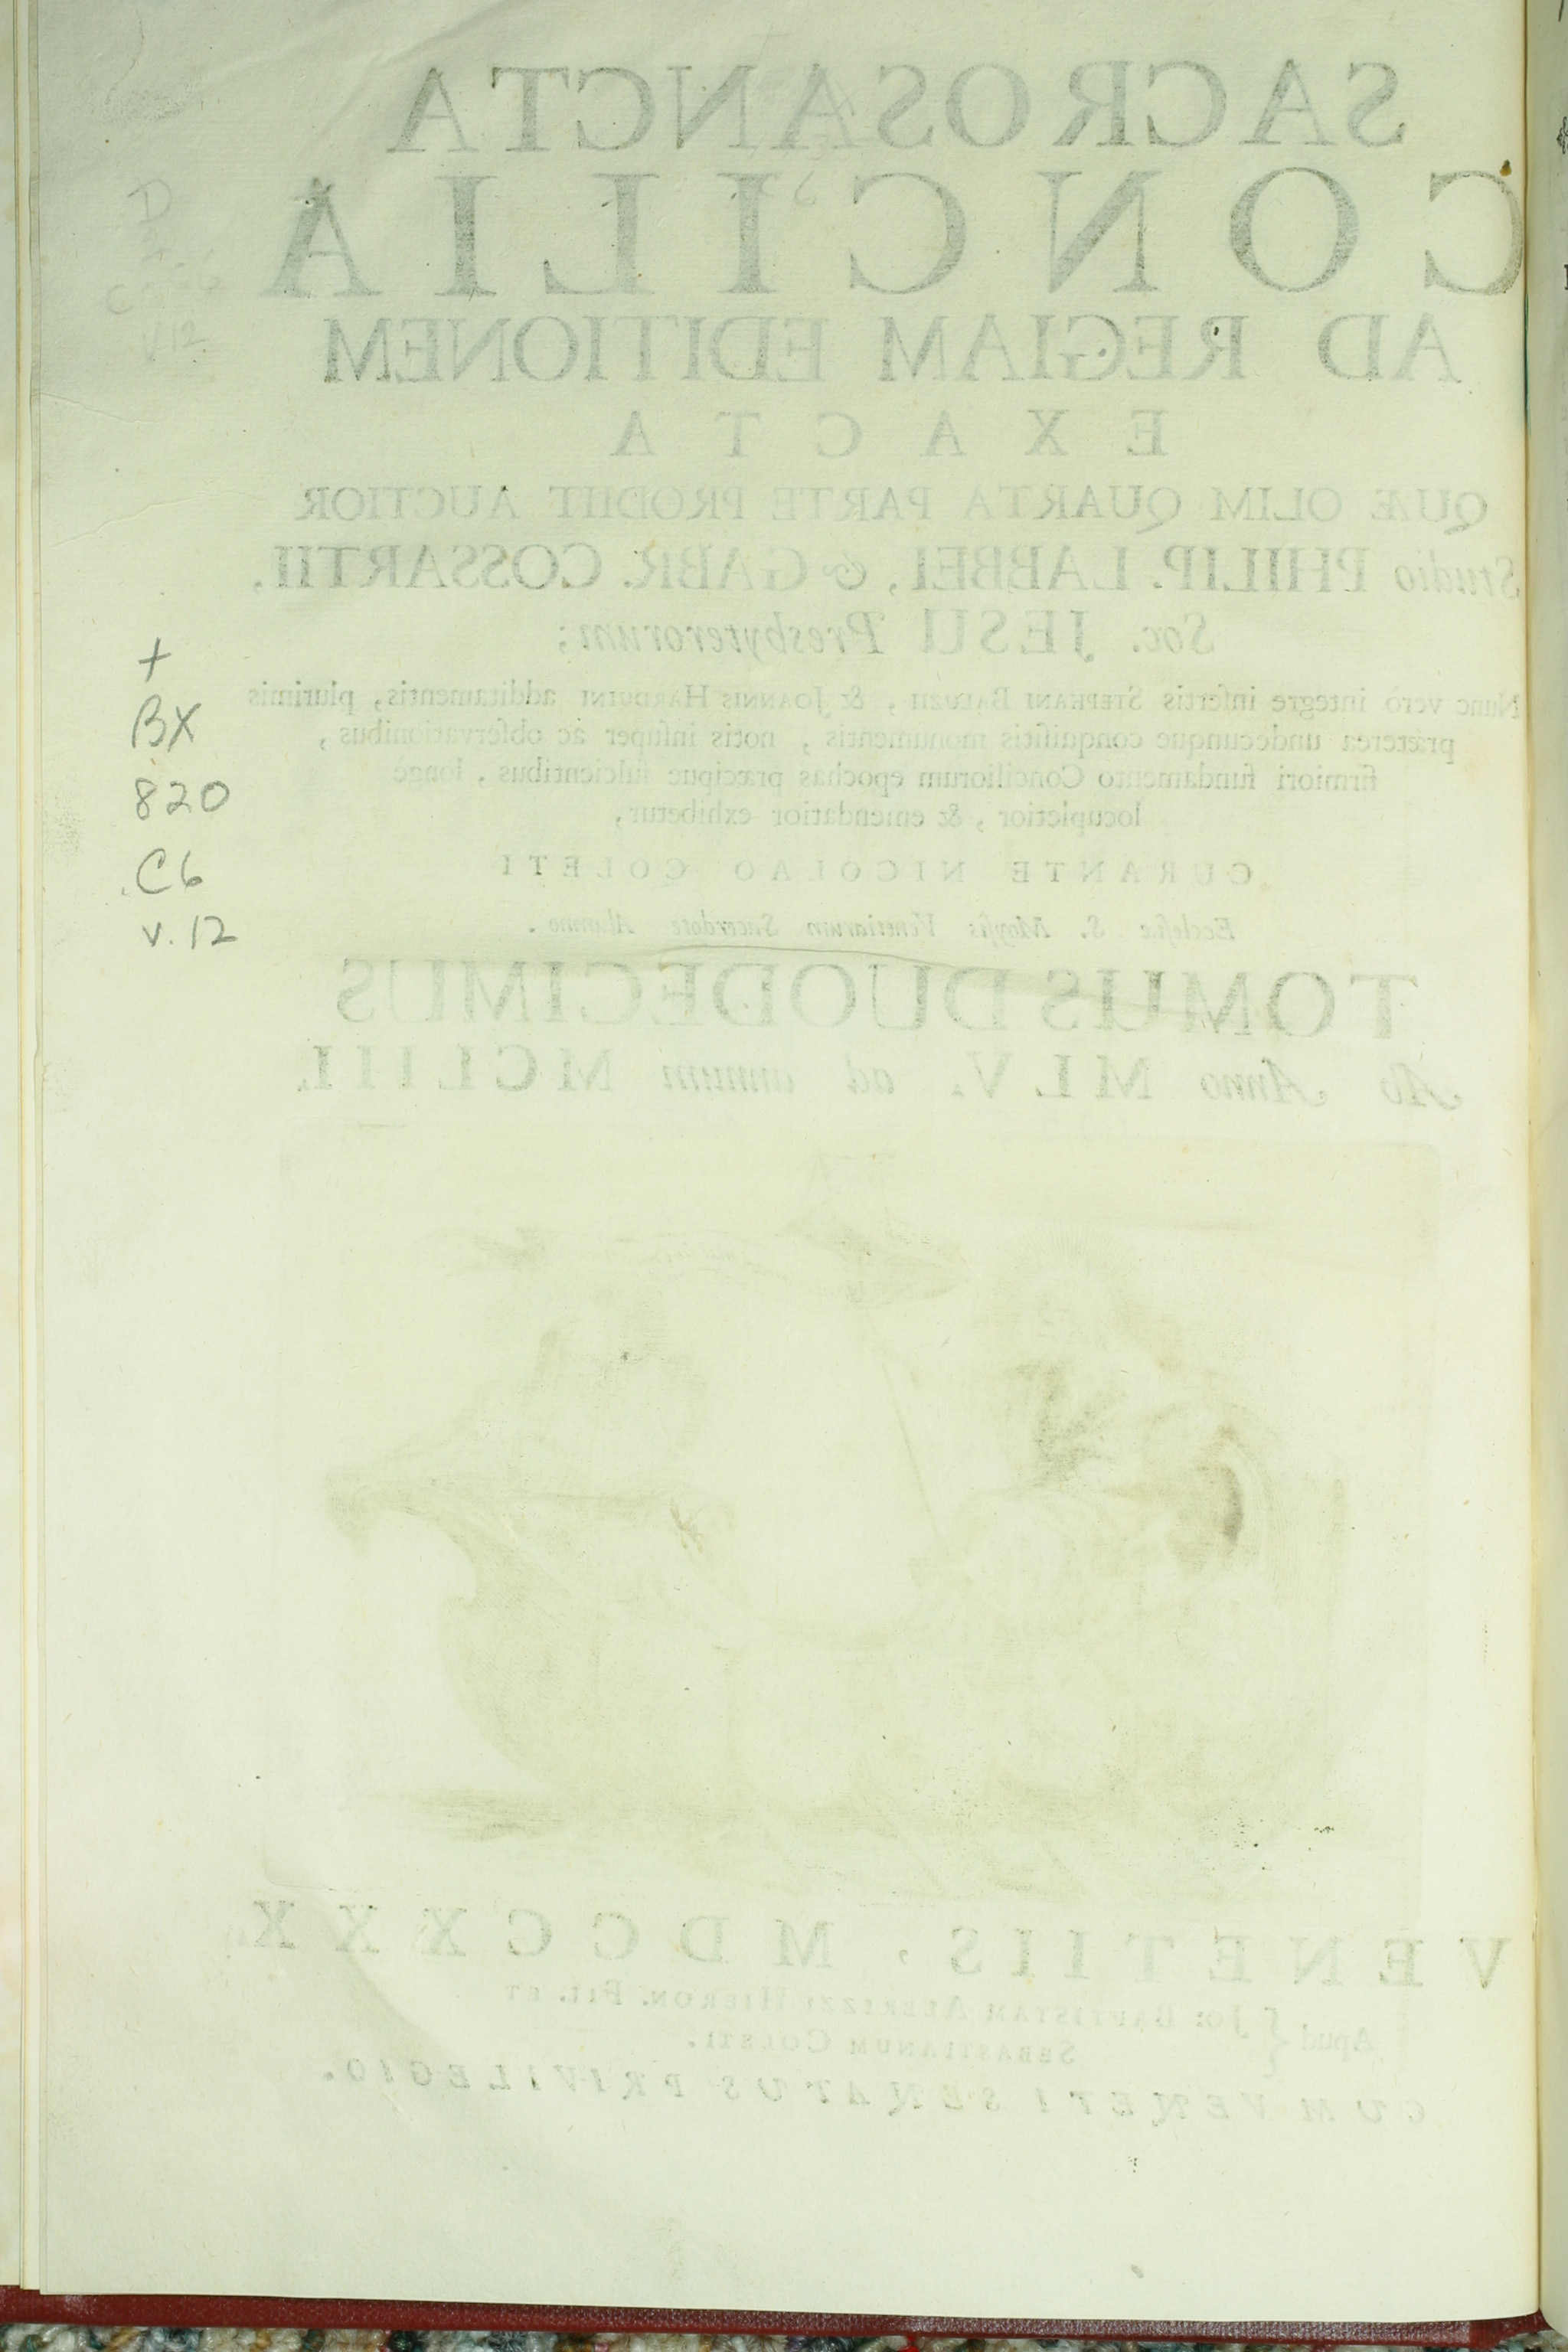 SACROSANCTA
CONCILIA
AD REGIAM EDITIONEM
EXACTA
QUÆ OLIM QUARTA PARTE PRODIIT AUCTIOR
Studio PHILIP. LABBEI, & GABR. COSSARTII,
Soc. JESU Presbyterorum;
Nunc verò integre insertis STEPHANI BALUZII, & JOANNIS HARDUINI additamentis, plurimis
præterea undecunque conquisitis monumentis, notis insuper ac observationibus,
firmiori fundamento Conciliorum epochas præcipue fulcientibus, longè
locupletior, & emendatior exhibetur,
CURANTE NICOLAO COLETI
Ecclesiæ S. Moysis Venetiarum Sacerdote Alumno.
TOMUS DUODECIMUS
Ab Anno MLV. ad annum MCLIII.
+
BX
820
.C6
v.12
VENETIIS, MDCCXXX.
Apud { Jo: BAPTISTAM ALBRIZZI HIERON. FIL. ET
SEBASTIANUM COLETI.
CUM VENETI SENATUS PRIVILEGIO.